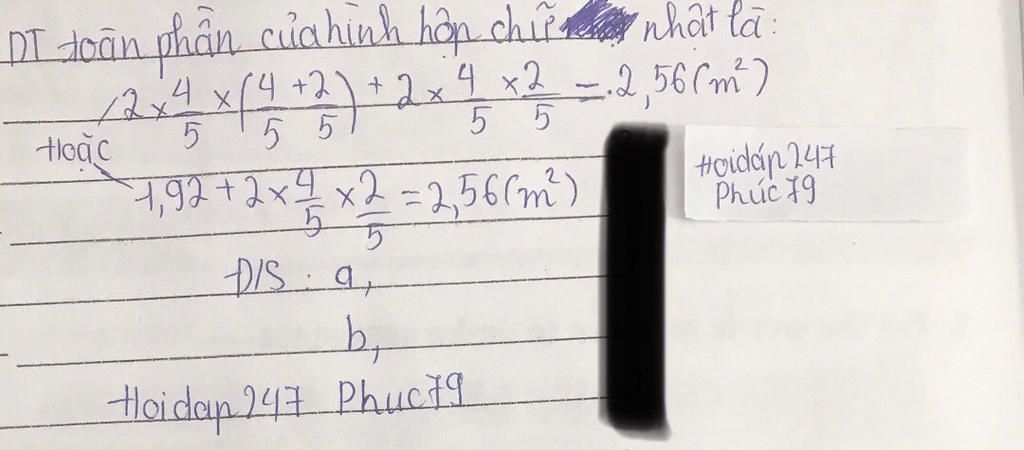 DT toàn phần của hình hộp chữ nhật là:
2 × 4/5 × (4/5 + 2/5) + 2 × 4/5 × 2/5 = 2,56 (m²)
Hoặc
1,92 + 2 × 4/5 × 2/5 = 2,56 (m²)
Hoidáp247
Phúc79
Đ/S : a,
b,
Hoidap247 Phuc79